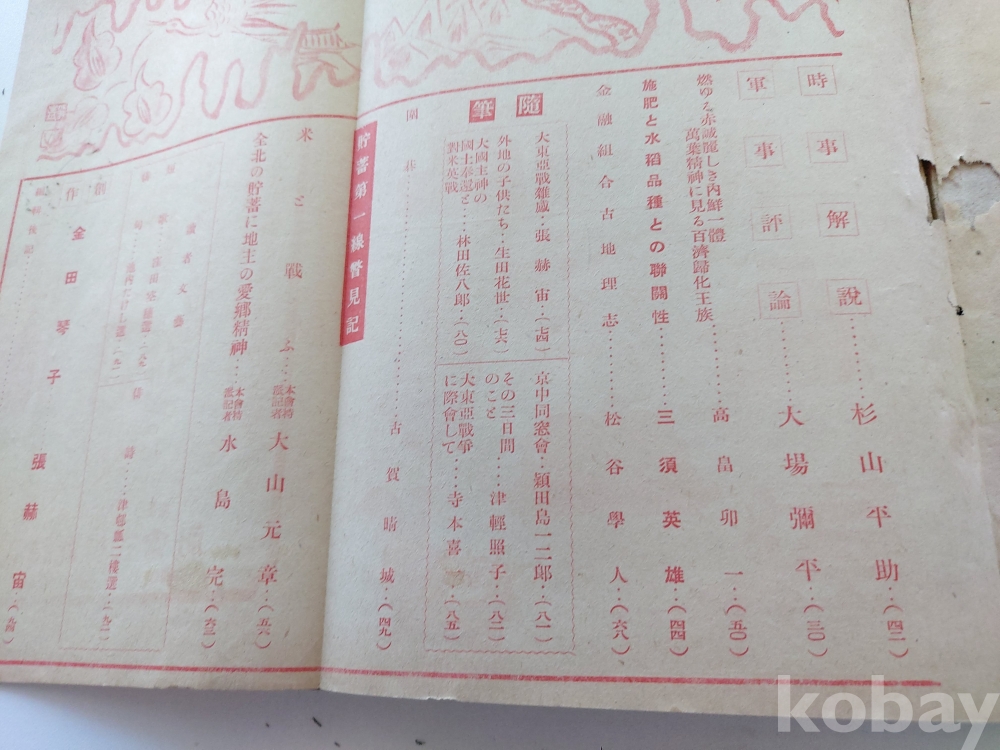 時事解說……杉山平助…(四二)
軍事評論……大場彌平…(三〇)
燃ゆる赤誠麗しき內鮮一體
萬葉精神に見る百濟歸化王族……高畠卯一…(五〇)
施肥と水稻品種との聯關性………三須英雄…(四四)
金融組合古地理志………松谷學人…(六八)
隨筆
大東亞戰雜感…張赫宙…(七四)
外地の子供たち…生田花世…(七六)
大國主神の
國土奉還と
對米英戰……林田佐八郞…(八〇)
京中同窓會…穎田島一二郞…(八一)
その三日間
のこと……津輕照子…(八二)
大東亞戰爭
に際會して……寺本喜一…(八五)
圍碁……………古賀晴城…(四九)
貯蓄第一線瞥見記
米と戰ふ…本會特派記者 大山元章…(五六)
全北の貯蓄に地主の愛鄕精神…本會特派記者 水島完…(六三)
讀者文藝
詩……津邨瓩二樓選…(九一)
創作
金田琴子 張赫宙…(九四)
編輯後記
kobay